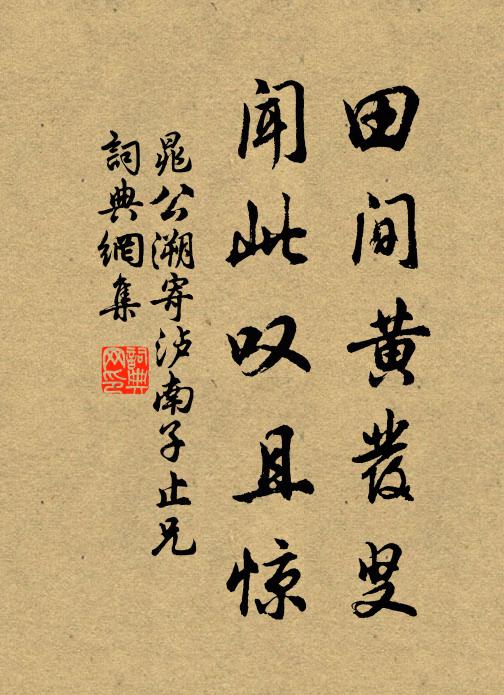 田间黄發叟
闻此叹且惊
晁公溯寄泸南子止兄
詞典網集
詞典网印